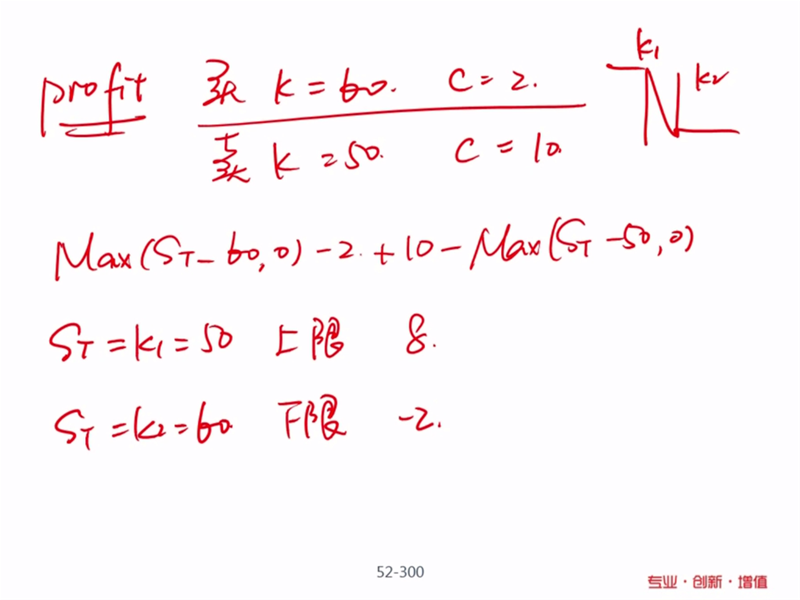 profit 买 K = 60. C = 2.
卖 K = 50. C = 10.
K1
K2
Max(ST - 60, 0) - 2. + 10 - Max(ST - 50, 0)
ST = K1 = 50 上限 8.
ST = K2 = 60. 下限 -2.
52-300
专业·创新·增值